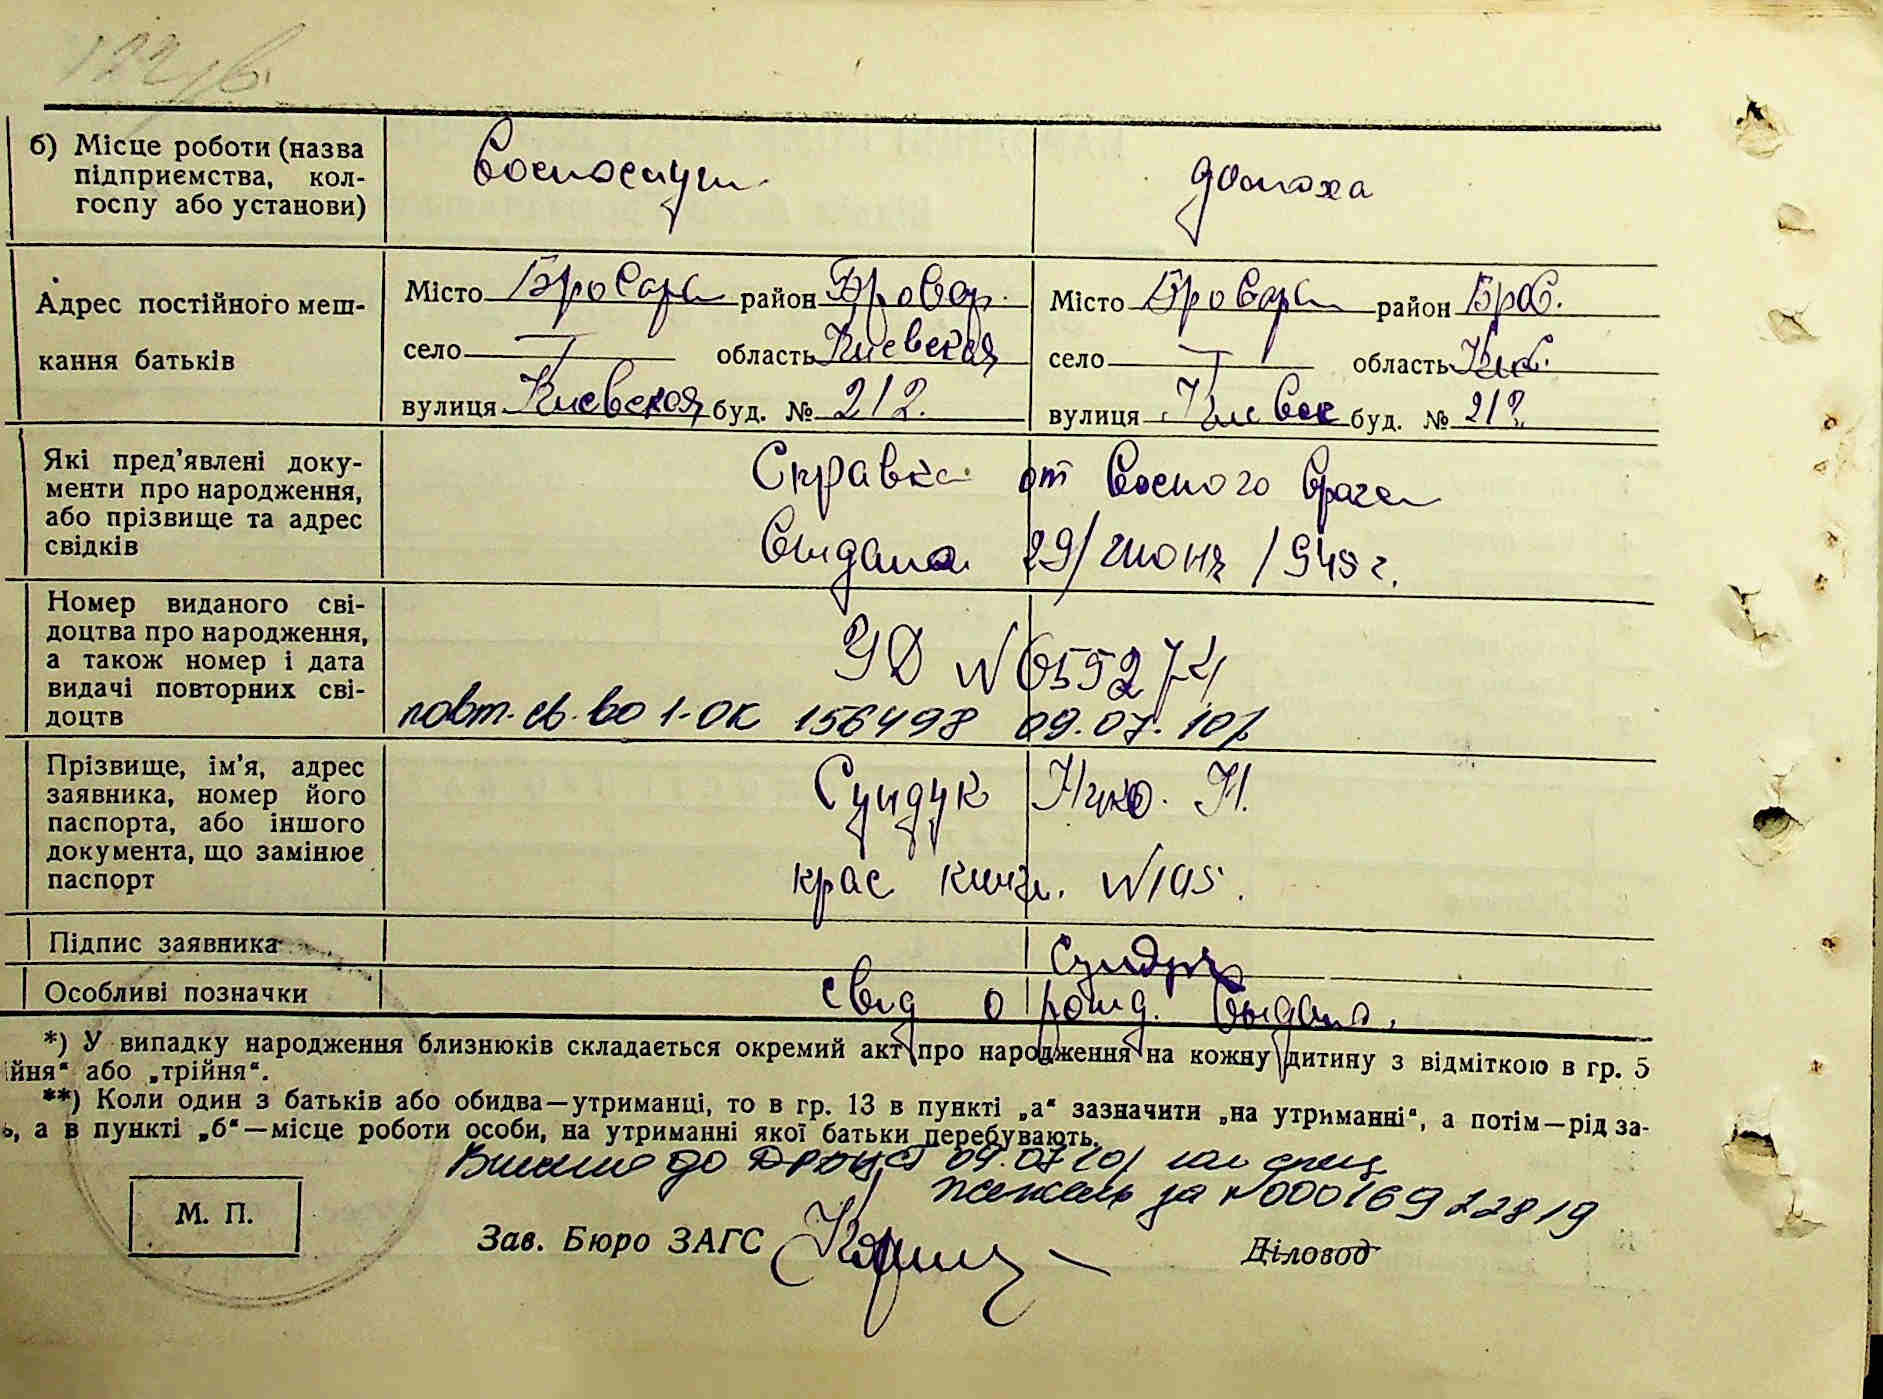 б) Місце роботи (назва
підприємства, кол-
госпу або установи)
Военослуж.
домоха
Адрес постійного меш-
кання батьків
Місто Бровары район Бровар.
село — область Киевская
вулиця Киевская буд. № 212.
Місто Бровары район Бров.
село — область Киев.
вулиця Киевск буд. № 212
Які пред’явлені доку-
менти про народження,
або прізвище та адрес
свідків
Справка от Военого врача
Выдана 29/июня 1945 г.
Номер виданого сві-
доцтва про народження,
а також номер і дата
видачі повторних сві-
доцтв
УД № 659274
повт. св. во 1-ОК 156498 09.07.10р
Прізвище, ім’я, адрес
заявника, номер його
паспорта, або іншого
документа, що замінює
паспорт
Сундук Нико. Н.
крас книж. №195.
Підпис заявника
Сундук
Особливі позначки
свид о рожд. Выдана.
*) У випадку народження близнюків складається окремий акт про народження на кожну дитину з відміткою в гр. 5
ійня“ або „трійня“.
**) Коли один з батьків або обидва—утриманці, то в гр. 13 в пункті „а“ зазначити „на утриманні“, а потім—рід за-
ь, а в пункті „б“—місце роботи особи, на утриманні якої батьки перебувають.
до 09.07.10р спец
за №00016922819
М. П.
Зав. Бюро ЗАГС
Діловод